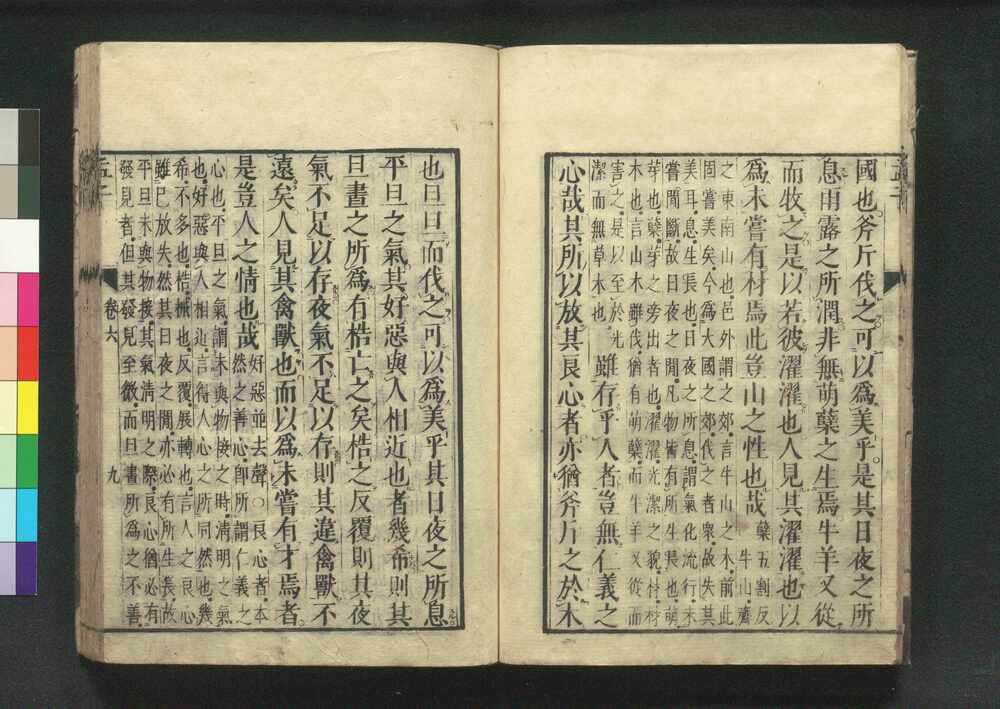 國也斧斤伐之可以爲美乎是其日夜之所
息雨露之所潤非無萌蘖之生焉牛羊又從
而牧之是以若彼濯濯也人見其濯濯也以
爲未嘗有材焉此豈山之性也哉
蘖五割反
牛山齊
之東南山也邑外謂之郊言牛山之木前此
固嘗美矣今爲大國之郊伐之者衆故失其
美耳息生長也日夜之所息謂氣化流行未
嘗間斷故日夜之間凡物皆有所生長也萌
芽也蘖芽之旁出者也濯濯光潔之貌材材
木也言山木雖伐猶有萌蘖而牛羊又從而
害之是以至於光
潔而無草木也
雖存乎人者豈無仁義之
心哉其所以放其良心者亦猶斧斤之於木
也旦旦而伐之可以爲美乎其日夜之所息
平旦之氣其好惡與人相近也者幾希則其
旦晝之所爲有梏亡之矣梏之反覆則其夜
氣不足以存夜氣不足以存則其違禽獸不
遠矣人見其禽獸也而以爲未嘗有才焉者
是豈人之情也哉
好惡並去聲○良心者本
然之善心卽所謂仁義之
心也平旦之氣謂未與物接之時淸明之氣
也好惡與人相近言得人心之所同然也幾
希不多也梏械也反覆展轉也言人之良心
雖已放失然其日夜之間亦必有所生長故
平旦未與物接其氣淸明之際良心猶必有
發見者但其發見至微而旦晝所爲之不善
孟子
卷六
九